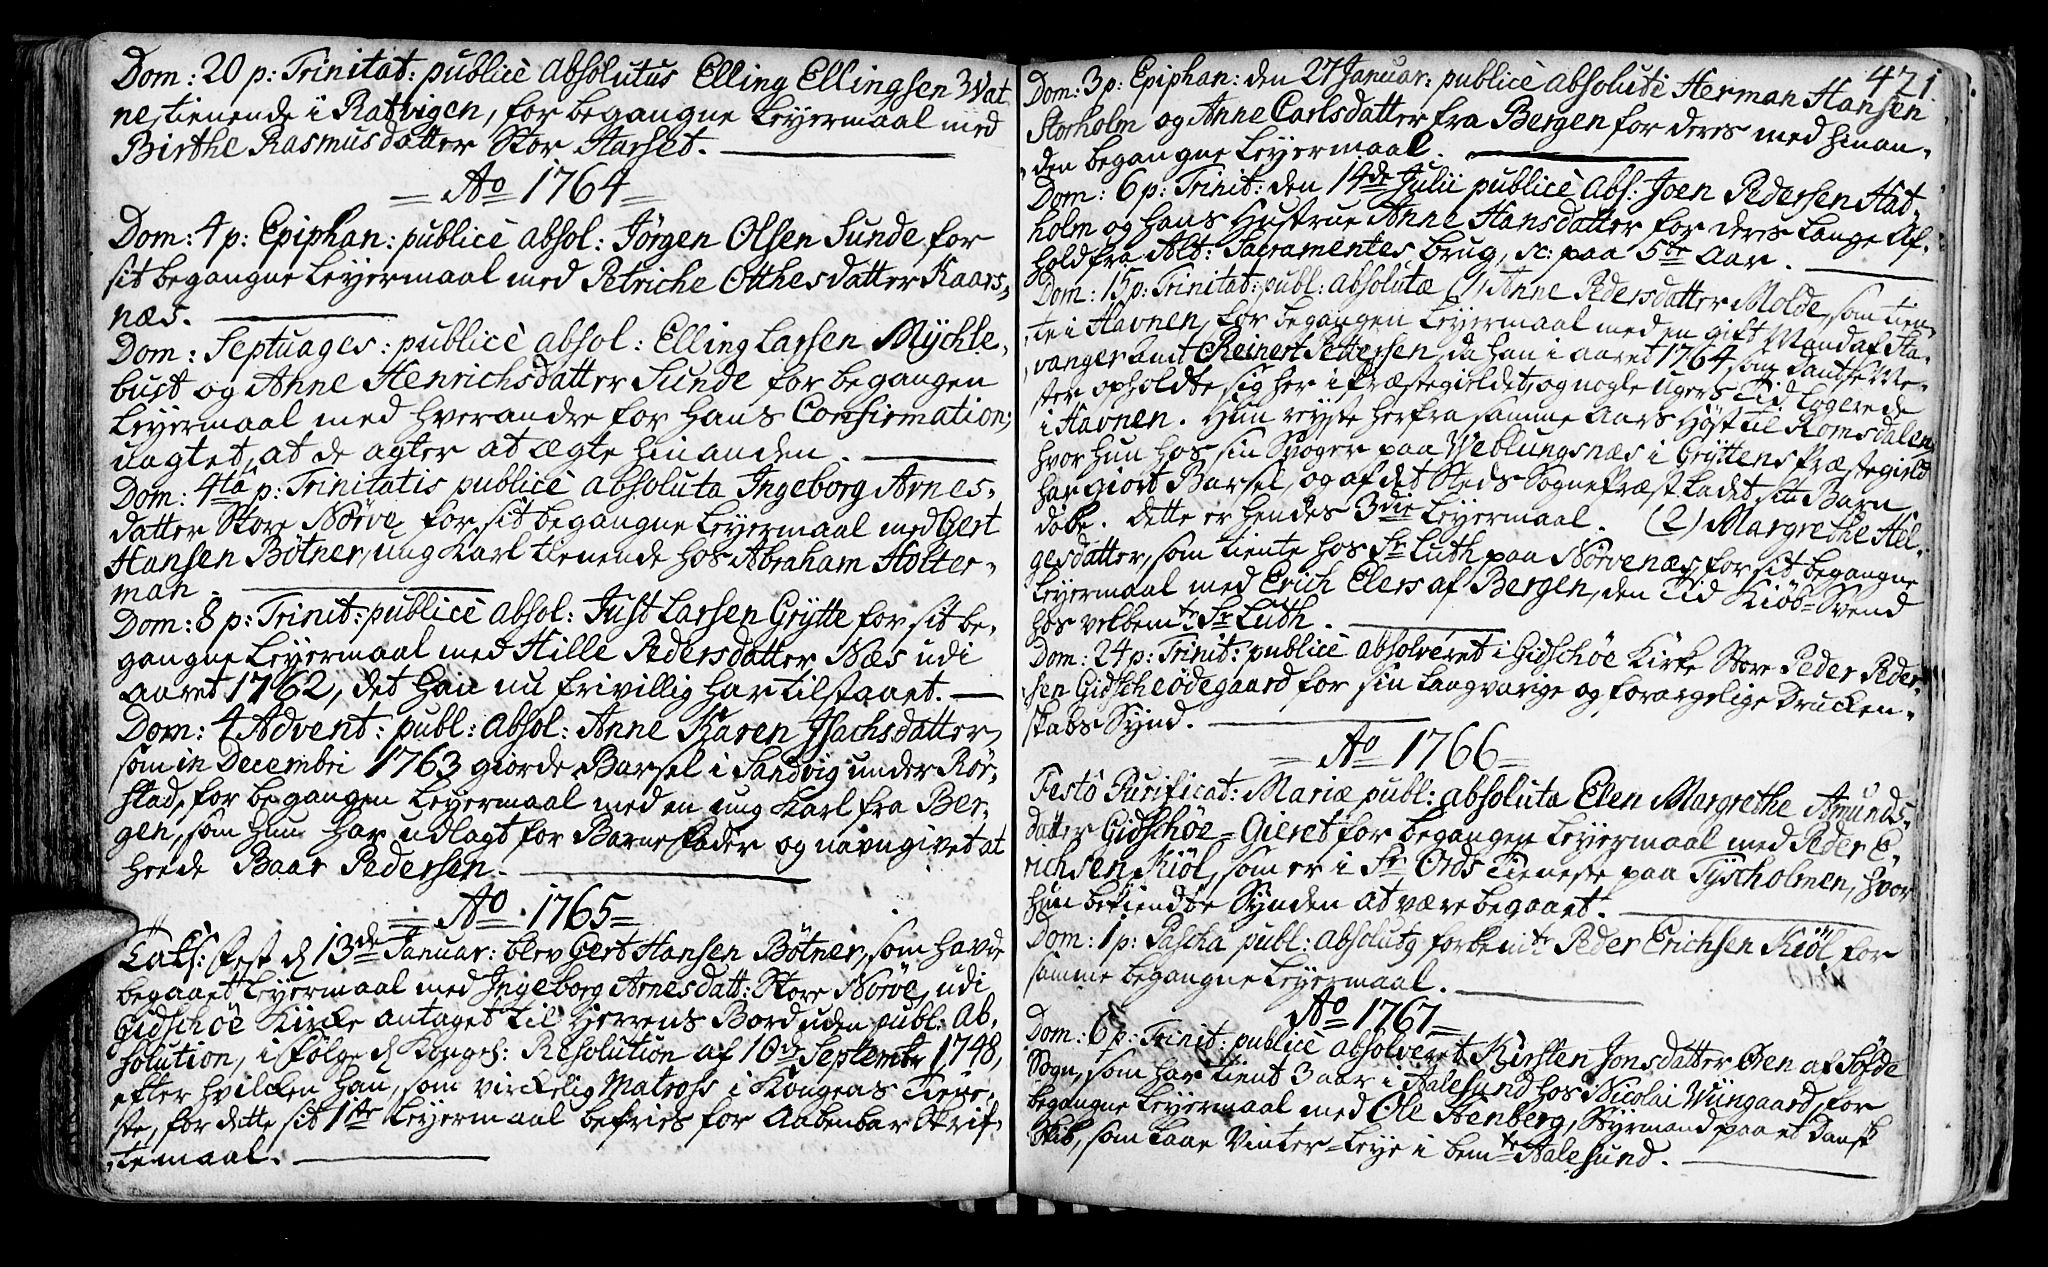 Dom: 20 p: Trinitat: publicè absolutus Elling Ellingsen Vat
ne, tienende i Ratvigen, for begangne Leyermaal med
Birthe Rasmusdatter Stor Harset.
= Ao 1764 =
Dom: 4 p: Epiphan: publicè absol: Jörgen Olsen Sunde for
sit begangne Leyermaal med Petriche Otthesdatter Kaars-
næs.
Dom: Septuages: publicè absol: Elling Larsen Mÿchle-
bust og Anne Henrichsdatter Sunde for begangen
Leyermaal med hverandre for hans Confirmation;
uagtet, at de agter at ægte hinanden.
Dom: 4ta p: Trinitatis publicè absoluta Ingeborg Arnes-
datter Store Nörve for sit begangne Leyermaal med Gert
Hansen Bötner, ung Karl tienende hos Abraham Holter-
man.
Dom: 8 p: Trinit: publicè absol: Just Larsen Grÿtte for sit be-
gangne Leyermaal med Hille Pedersdatter Næs udi
aaret 1762, det han nu frivillig har tilstaaet.
Dom: 4 Advent: publ: absol: Anne Karen Isachsdatter,
som in Decembri 1763 giorde Barsel i Sandvig under Rör-
stad, for begangen Leyermaal med en ung Karl fra Ber-
gen, som hun har udlagt for Barnefader og navngivet at
heede Baar Pedersen.
= Ao 1765 =
Taks: fest d 13de Januar: blev Gert Hansen Bötner, som havde
begaaet Leyermaal med Ingeborg Arnesdatt: Store Nörve, udi
Gidschöe Kirke antaget til Herrens Bord uden publ: Ab-
solution, i fölge d Kongel: Resolution af 10de Septembr 1748,
efter hvilken han, som virkelig Matross i Kongens Tiene-
ste, for dette sit 1ste Leyermaal befries for Aabenbar Skrif-
temaal.
471.
Dom: 3 p: Epiphan: den 27 Januar: publicè absoluti Herman Hansen
Storholm og Anne Carlsdatter fra Bergen for deres med hinan-
den begangne Leyermaal.
Dom: 6 p: Trinit: den 14de Julii publicè abs: Joen Pedersen Hat-
holm og hans Hustrue Anne Hansdatter for deres lange Af-
hold fra Alt: Sacramentes brug, sc: paa 5te Aar.
Dom: 15 p: Trinitat: publ: absolutæ (1) Anne Pedersdatter Molde, som tien-
te i Havnen, for begangen Leyermaal med en gift Mand af Sta-
vanger amt Reinert Pettersen, da han i aaret 1764 som Dantse Me-
ster opholdte sig her i Præstegieldet, og nogle Ugers Tid logerede
i Havnen. Hun reyste herfra samme Aars Höst til Romsdalen,
hvor hun hos sin Svoger paa Weblungsnæs i Grÿttens Præstegield
har giort Barsel, og af det Steds SognePræst ladet sit Barn
döbe. Dette er hendes 3die Leyermaal. (2) Margrethe Hel-
gesdatter, som tiente hos Sr Luth paa Nörvenæs, for sit begangne
Leyermaal med Erich Elers af Bergen, den Tid Kiöb-Svend
hos velbemte Sr Luth.
Dom: 24 p: Trinit: publicè absolveret i Gidschöe Kirke Store Peder Peder-
sen Gidscheödegaard for sin langvarige og forargelige Drucken-
skabs Synd.
= Ao 1766 =
Festô Purificat: Mariæ publ: absoluta Elen Margrethe Amunds-
datter Gidschöe-Gieret for begangen Leyermaal med Peder E-
richsen Kiöl, som er i Sr Ords Tieneste paa Tÿscholmen, hvor
hun bekiendte Synden at være begaaet.
Dom: 1 p: Pascha publ: absolutg forbemte Peder Erichsen Kiöl for
samme begangne Leyermaal.
Ao 1767 =
Dom: 6 p: Trinit: publicè absolveret Kirsten Jonsdatter Öen af Söfde
Sogn, som har tient 3 aar i Aalesund hos Nicolai Wiingaard, for
begangne Leyermaal med Ole Henberg, Styrmand paa et Dansk
Skib, som laae Vinter-Leye i bemte Aalesund.